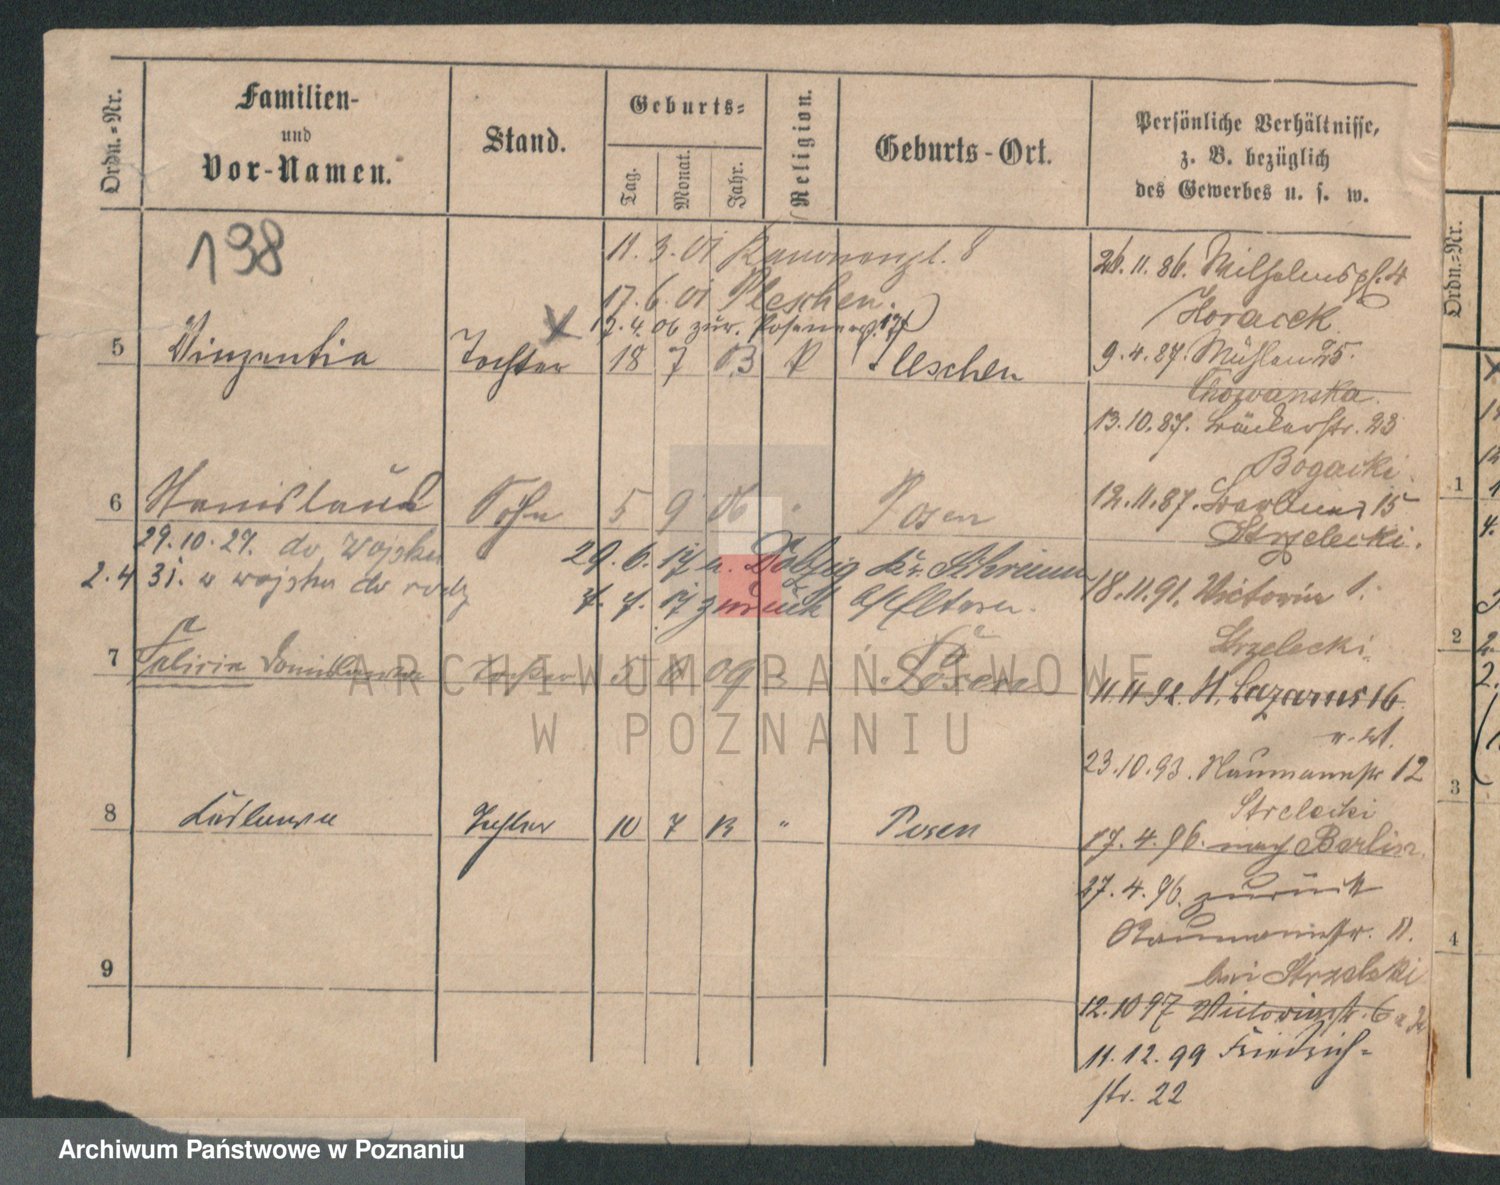 Ordn.-Nr.
Familien-
und
Vor-Namen.
Stand.
Geburts-
Tag.
Monat.
Jahr.
Religion.
Geburts-Ort.
Persönliche Verhältnisse,
z. B. bezüglich
des Gewerbes u. s. w.
198
11.3.01 Kanonenpl. 8
17.6.01 Pleschen.
12.4.06 zur. Posenerstr. 17
5 Vinzentia Tochter 18 7 83 Pleschen
6 Stanislaus Sohn 5 9 06 Posen
29.10.27. do wojska
2.4 31. z wojska do rodz
29.6.17 n. Dolzig Kr. Schrimm
7.7.17 zurück b/Eltern.
7 Felicia Tochter 5 8 09 Posen
8 Ludowia Tochter 10 7 13 " Posen
9
26.11.86. Wilhelmspl. 4
Horacek
9.4.87. Mühlen 25.
Chowanska.
13.10.87. Bäckerstr. 23
Bogacki.
12.11.87. Berliner 15
Strzelecki.
18.11.91. Victoria 1.
Strzelecki.
11.11.92. St. Lazarus 16
23.10.93. Naumannstr 12
Strelecki
17.4.96. nach Berlin.
27.4.96. zurück
Naumannstr. 11.
bei Strzelecki
12.10 97 Victoriastr. 6
11.12.99 Friedrich-
str. 22
Ordn.-Nr.
1
2
3
4
ARCHIWUM PAŃSTWOWE
W POZNANIU
Archiwum Państwowe w Poznaniu